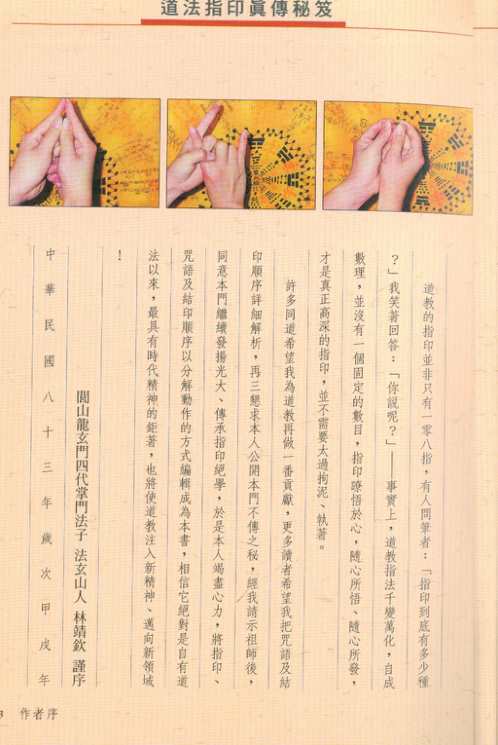 道法指印眞傳秘笈
道教的指印並非只有一零八指，有人問筆者：「指印到底有多少種
？」我笑著回答：「你說呢？」——事實上，道教指法千變萬化，自成
數理，並沒有一個固定的數目，指印瞭悟於心，隨心所悟、隨心所發，
才是真正高深的指印，並不需要太過拘泥、執著。
許多同道希望我為道教再做一番貢獻，更多讀者希望我把咒語及結
印順序詳細解析，再三懇求本人公開本門不傳之秘，經我請示祖師後，
同意本門繼續發揚光大、傳承指印絕學，於是本人竭盡心力，將指印、
咒語及結印順序以分解動作的方式編輯成為本書，相信它絕對是自有道
法以來，最具有時代精神的鉅著，也將使道教注入新精神、邁向新領域
！
閭山龍玄門四代掌門法子 法玄山人 林靖欽 謹序
中華民國八十三年歲次甲戌年
3 作者序